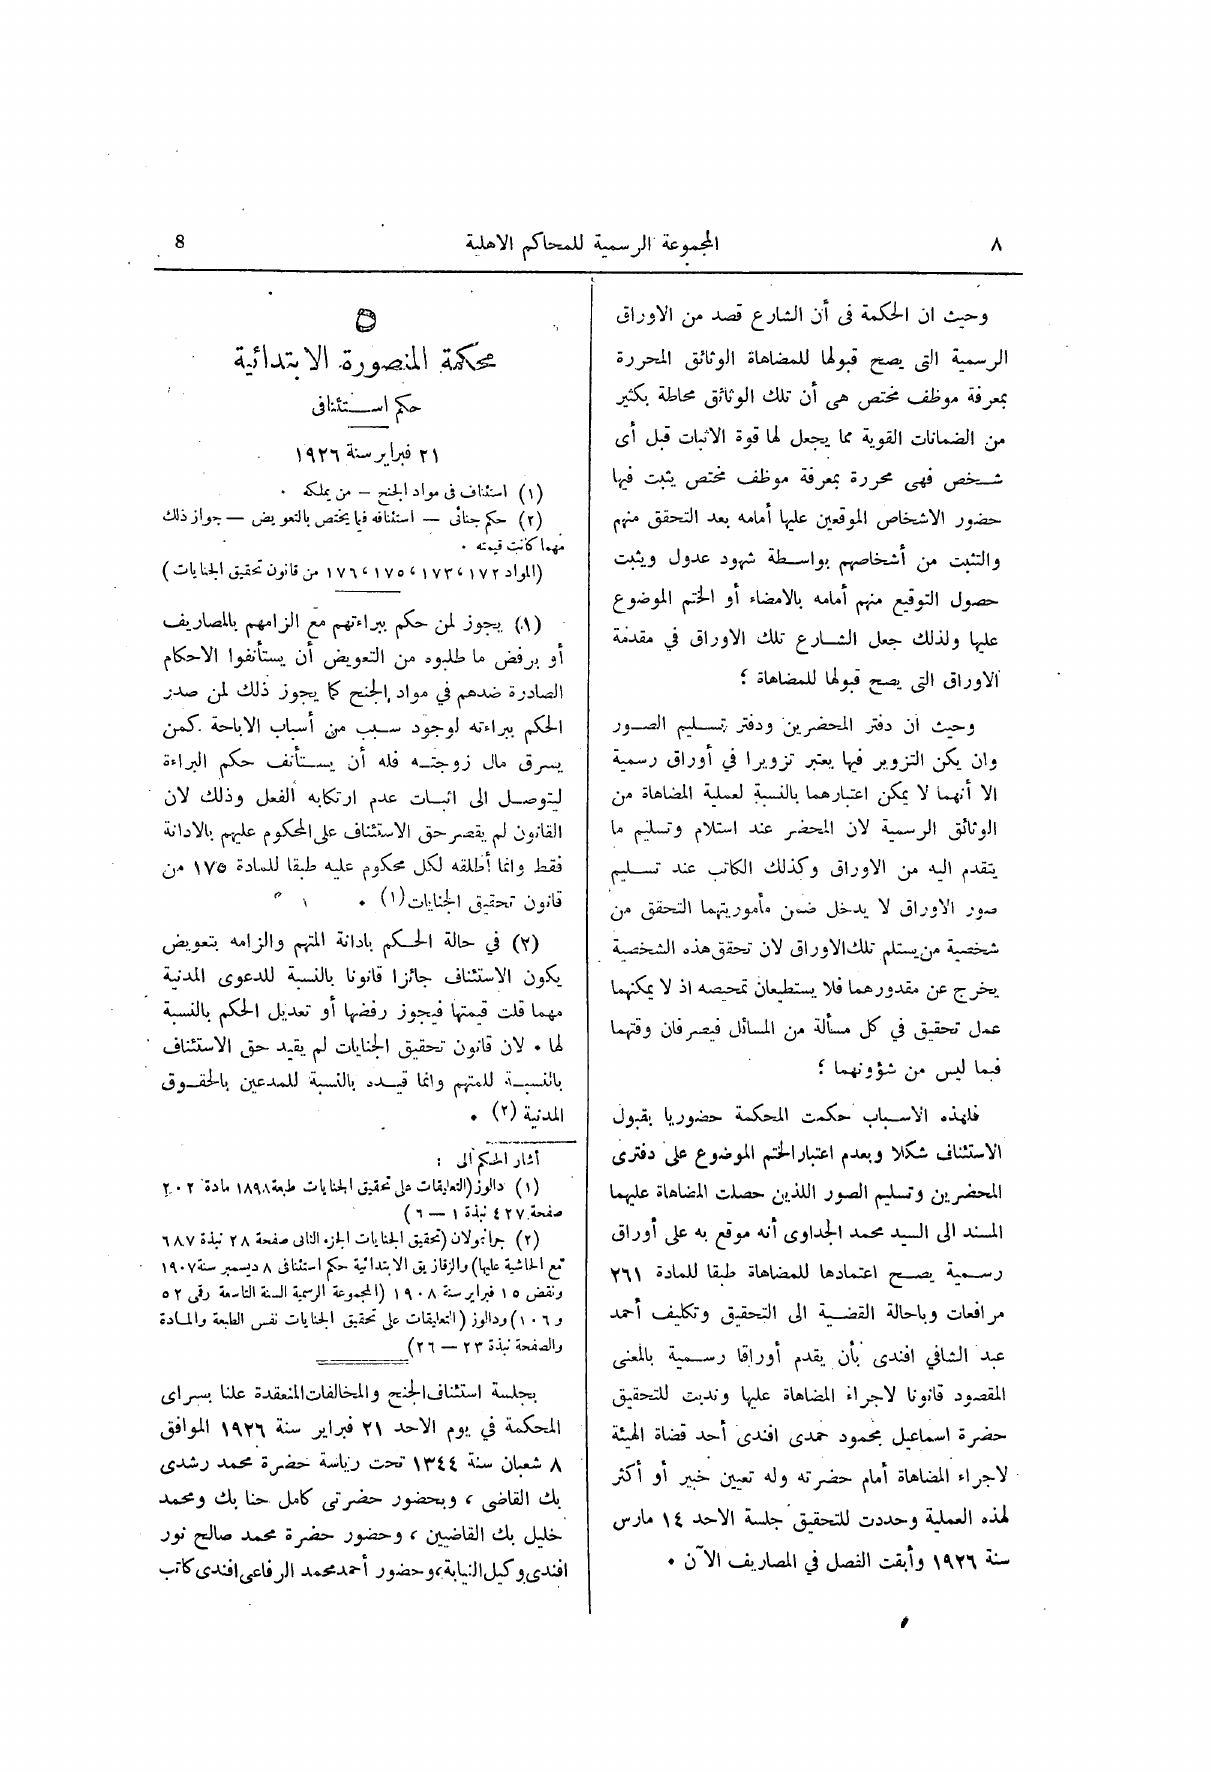 ٨
المجموعة الرسمية للمحاكم الاهلية
8
وحيث ان الحكمة فى أن الشارع قصد من الاوراق
الرسمية التى يصح قبولها للمضاهاة الوثائق المحررة
بمعرفة موظف مختص هى أن تلك الوثائق محاطة بكثير
من الضمانات القوية مما يجعل لها قوة الاثبات قبل أى
شخص فهى محررة بمعرفة موظف مختص يثبت فيها
حضور الاشخاص الموقعين عليها أمامه بعد التحقق منهم
والتثبت من أشخاصهم بواسطة شهود عدول ويثبت
حصول التوقيع منهم أمامه بالامضاء أو الختم الموضوع
عليها ولذلك جعل الشارع تلك الاوراق في مقدمة
الاوراق التى يصح قبولها للمضاهاة ؛
وحيث ان دفتر المحضرين ودفتر تسليم الصور
وان يكن التزوير فيها يعتبر تزويرا في أوراق رسمية
الا أنهما لا يمكن اعتبارهما بالنسبة لعملية المضاهاة من
الوثائق الرسمية لان المحضر عند استلام وتسليم ما
يتقدم اليه من الاوراق وكذلك الكاتب عند تسليم
صور الاوراق لا يدخل ضمن مأموريتهما التحقق من
شخصية من يستلم تلك الاوراق لان تحقق هذه الشخصية
يخرج عن مقدورهما فلا يستطيعان تمحيصه اذ لا يمكنهما
عمل تحقيق في كل مسألة من المسائل فيصرفان وقتهما
فيما ليس من شؤونهما ؛
فلهذه الاسباب حكمت المحكمة حضوريا بقبول
الاستئناف شكلا وبعدم اعتبار الختم الموضوع على دفترى
المحضرين وتسليم الصور اللذين حصلت المضاهاة عليهما
المسند الى السيد محمد الجداوى أنه موقع به على أوراق
رسمية يصح اعتمادها للمضاهاة طبقا للمادة ٢٦١
مرافعات وباحالة القضية الى التحقيق وتكليف أحمد
عبد الشافي افندى بأن يقدم أوراقا رسمية بالمعنى
المقصود قانونا لاجراء المضاهاة عليها وندبت للتحقيق
حضرة اسماعيل محمود حمدى افندى أحد قضاة الهيئة
لاجراء المضاهاة أمام حضرته وله تعيين خبير أو أكثر
لهذه العملية وحددت للتحقيق جلسة الاحد ١٤ مارس
سنة ١٩٢٦ وأبقت الفصل في المصاريف الآن .
٥
محكمة المنصورة الابتدائية
حكم استئنافى
٢١ فبراير سنة ١٩٢٦
(١) استئناف فى مواد الجنح – من يملكه .
(٢) حكم جنائى – استئنافه فيما يختص بالتعويض – جواز ذلك
مهما كانت قيمته .
(المواد ١٧٢ ، ١٧٣ ، ١٧٥ ، ١٧٦ من قانون تحقيق الجنايات)
(١) يجوز لمن حكم ببراءتهم مع الزامهم بالمصاريف
أو برفض ما طلبوه من التعويض أن يستأنفوا الاحكام
الصادرة ضدهم في مواد الجنح كما يجوز ذلك لمن صدر
الحكم ببراءته لوجود سبب من أسباب الاباحة كمن
يسرق مال زوجته فله أن يستأنف حكم البراءة
ليتوصل الى اثبات عدم ارتكابه الفعل وذلك لان
القانون لم يقصر حق الاستئناف على المحكوم عليهم بالادانة
فقط وانما أطلقه لكل محكوم عليه طبقا للمادة ١٧٥ من
قانون تحقيق الجنايات (١) .
(٢) في حالة الحكم بادانة المتهم والزامه بتعويض
يكون الاستئناف جائزا قانونا بالنسبة للدعوى المدنية
مهما قلت قيمتها فيجوز رفضها أو تعديل الحكم بالنسبة
لها . لان قانون تحقيق الجنايات لم يقيد حق الاستئناف
بالنسبة للمتهم وانما قيده بالنسبة للمدعين بالحقوق
المدنية (٢) .
أشار الحكم الى :
(١) دالوز (التعليقات على تحقيق الجنايات طبعة ١٨٩٨ مادة ٢٠٢
صفحة ٤٢٧ نبذة ١ – ٦)
(٢) جرانمولان (تحقيق الجنايات الجزء الثانى صفحة ٢٨ نبذة ٦٨٧
مع الحاشية عليها) والزقازيق الابتدائية حكم استئنافى ٨ ديسمبر سنة ١٩٠٧
ونقض ١٥ فبراير سنة ١٩٠٨ (المجموعة الرسمية السنة التاسعة رقمى ٥٢
و ١٠٦) ودالوز (التعليقات على تحقيق الجنايات نفس الطبعة والمادة
والصفحة نبذة ٢٣ – ٢٦)
بجلسة استئناف الجنح والمخالفات المنعقدة علنا بسراى
المحكمة في يوم الاحد ٢١ فبراير سنة ١٩٢٦ الموافق
٨ شعبان سنة ١٣٤٤ تحت رياسة حضرة محمد رشدى
بك القاضى ، وبحضور حضرتى كامل حنا بك ومحمد
خليل بك القاضيين ، وحضور حضرة محمد صالح نور
افندى وكيل النيابة ، وحضور أحمد محمد الرفاعى افندى كاتب